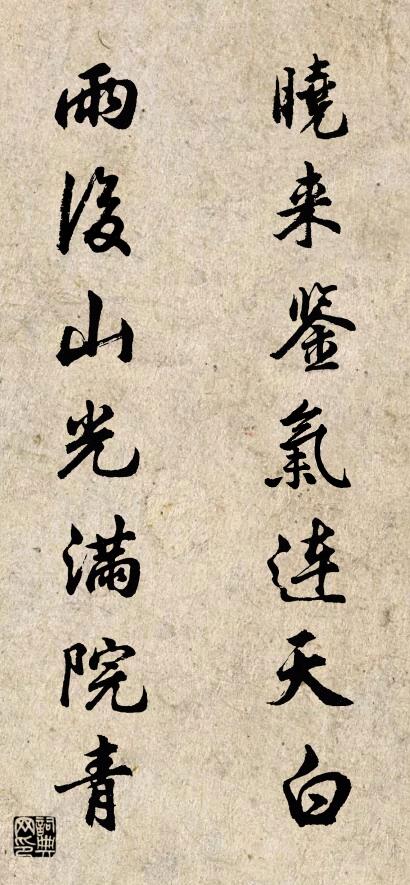 曉来鉴氣連天白
雨後山光滿院青
詞典
网印